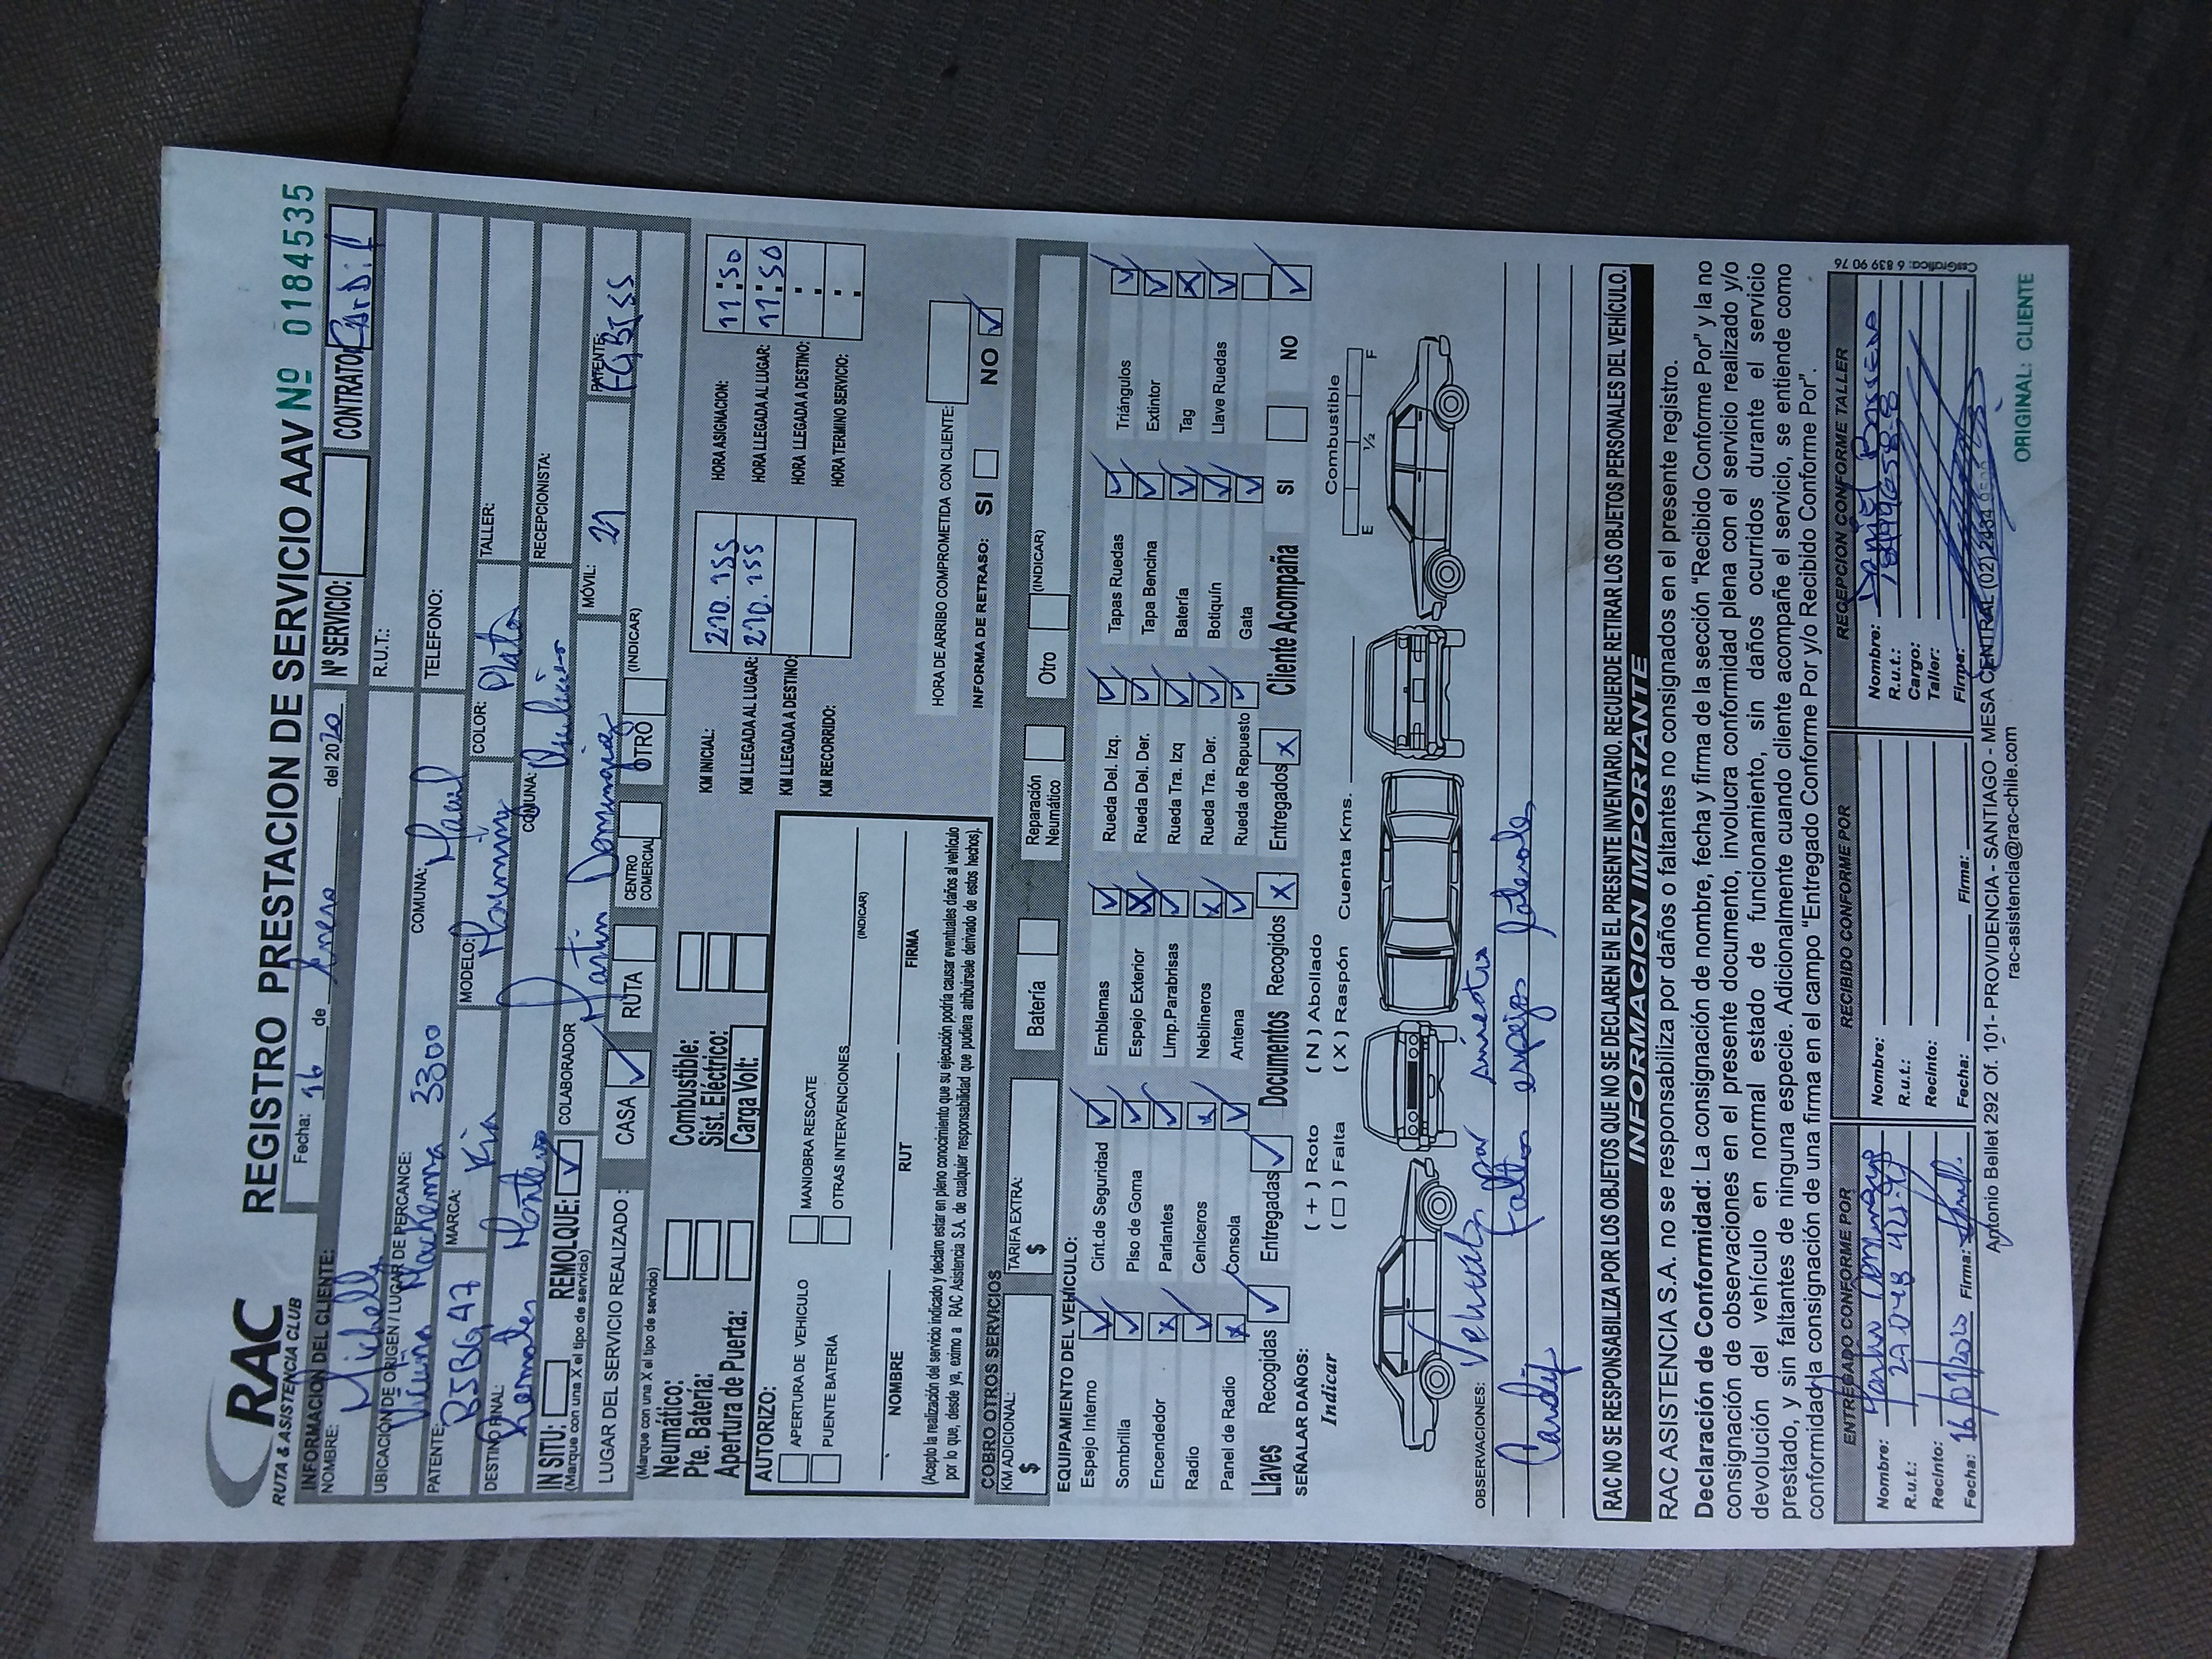 RAC
RUTA & ASISTENCIA CLUB
REGISTRO PRESTACION DE SERVICIO AAV Nº 0184535
Fecha: 16 de Enero del 2020
Nº SERVICIO:
CONTRATO: Cardif
INFORMACION DEL CLIENTE:
NOMBRE: Michell
R.U.T.:
UBICACIÓN DE ORIGEN / LUGAR DE PERCANCE: Vicuña Mackenna 3300
COMUNA: Macul
TELEFONO:
PATENTE: BJBG47
MARCA: Kia
MODELO: Morning
COLOR: Plata
TALLER:
DESTINO FINAL: Remates
COMUNA:
RECEPCIONISTA:
IN SITU:
REMOLQUE: ✓
(Marque con una X el tipo de servicio)
COLABORADOR Martin Dominguez
MÓVIL: 21
PATENTE: FGBC55
LUGAR DEL SERVICIO REALIZADO :
CASA ✓
RUTA
CENTRO COMERCIAL
OTRO
(INDICAR)
(Marque con una X el tipo de servicio)
Neumático:
Combustible:
Pte. Batería:
Sist. Eléctrico:
Apertura de Puerta:
Carga Volt:
KM INICIAL: 210.155
HORA ASIGNACION: 11:50
KM LLEGADA AL LUGAR: 210.155
HORA LLEGADA AL LUGAR: 11:50
KM LLEGADA A DESTINO:
HORA LLEGADA A DESTINO:
KM RECORRIDO:
HORA TERMINO SERVICIO:
AUTORIZO:
APERTURA DE VEHICULO
MANIOBRA RESCATE
PUENTE BATERÍA
OTRAS INTERVENCIONES
(INDICAR)
NOMBRE
RUT
FIRMA
(Acepto la realización del servicio indicado y declaro estar en pleno conocimiento que su ejecución podría causar eventuales daños al vehículo
por lo que, desde ya, eximo a RAC Asistencia S.A. de cualquier responsabilidad que pudiera atribuirsele derivado de estos hechos).
HORA DE ARRIBO COMPROMETIDA CON CLIENTE:
INFORMA DE RETRASO: SI NO ✓
COBRO OTROS SERVICIOS
KM ADICIONAL: $
TARIFA EXTRA: $
Batería
Reparación Neumático
Otro
(INDICAR)
EQUIPAMIENTO DEL VEHÍCULO:
Espejo Interno ✓ Cint.de Seguridad ✓ Emblemas ✓ Rueda Del. Izq. ✓ Tapas Ruedas ✓ Triángulos ✓
Sombrilla ✓ Piso de Goma ✓ Espejo Exterior X Rueda Del. Der. ✓ Tapa Bencina ✓ Extintor ✓
Encendedor X Parlantes ✓ Limp.Parabrisas ✓ Rueda Tra. Izq ✓ Batería ✓ Tag X
Radio ✓ Ceniceros X Neblineros X Rueda Tra. Der. ✓ Botiquín ✓ Llave Ruedas ✓
Panel de Radio X Consola ✓ Antena ✓ Rueda de Repuesto ✓ Gata ✓
Llaves Recogidas ✓ Entregadas ✓ Documentos Recogidos X Entregados X Cliente Acompaña SI NO ✓
SEÑALAR DAÑOS:
Indicar
( + ) Roto ( N ) Abollado
( □ ) Falta ( X ) Raspón
Cuenta Kms.
Combustible
E ½ F
OBSERVACIONES: Vehiculo por siniestro
Cardif faltan espejos laterales
RAC NO SE RESPONSABILIZA POR LOS OBJETOS QUE NO SE DECLAREN EN EL PRESENTE INVENTARIO. RECUERDE RETIRAR LOS OBJETOS PERSONALES DEL VEHÍCULO.
INFORMACION IMPORTANTE
RAC ASISTENCIA S.A. no se responsabiliza por daños o faltantes no consignados en el presente registro.
Declaración de Conformidad: La consignación de nombre, fecha y firma de la sección "Recibido Conforme Por" y la no
consignación de observaciones en el presente documento, involucra conformidad plena con el servicio realizado y/o
devolución del vehículo en normal estado de funcionamiento, sin daños ocurridos durante el servicio
prestado, y sin faltantes de ninguna especie. Adicionalmente cuando cliente acompañe el servicio, se entiende como
conformidad la consignación de una firma en el campo "Entregado Conforme Por y/o Recibido Conforme Por".
ENTREGADO CONFORME POR
Nombre: Martin Dominguez
R.u.t.:
Recinto:
Fecha: 16/01/2020 Firma:
RECIBIDO CONFORME POR
Nombre:
R.u.t.:
Recinto:
Fecha: Firma:
RECEPCION CONFORME TALLER
Nombre:
R.u.t.:
Cargo:
Taller:
Firma:
CssGrafica: 6 839 90 76
Antonio Bellet 292 Of. 101- PROVIDENCIA - SANTIAGO - MESA CENTRAL (02)
rac-asistencia@rac-chile.com
ORIGINAL: CLIENTE